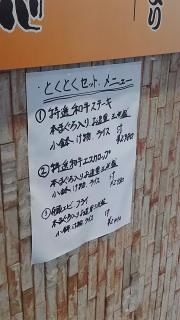 とくとくセット メニュー
① 特選和牛ステーキ
本まぐろ入りお造里三点盛
小鉢 け物 ライス 汁
② 特選和牛エスカロップ
本まぐろ入りお造里三点盛
小鉢 け物 ライス 汁
エビフライ
本まぐろ入りお造里三点盛
小鉢 け物 ライス 汁